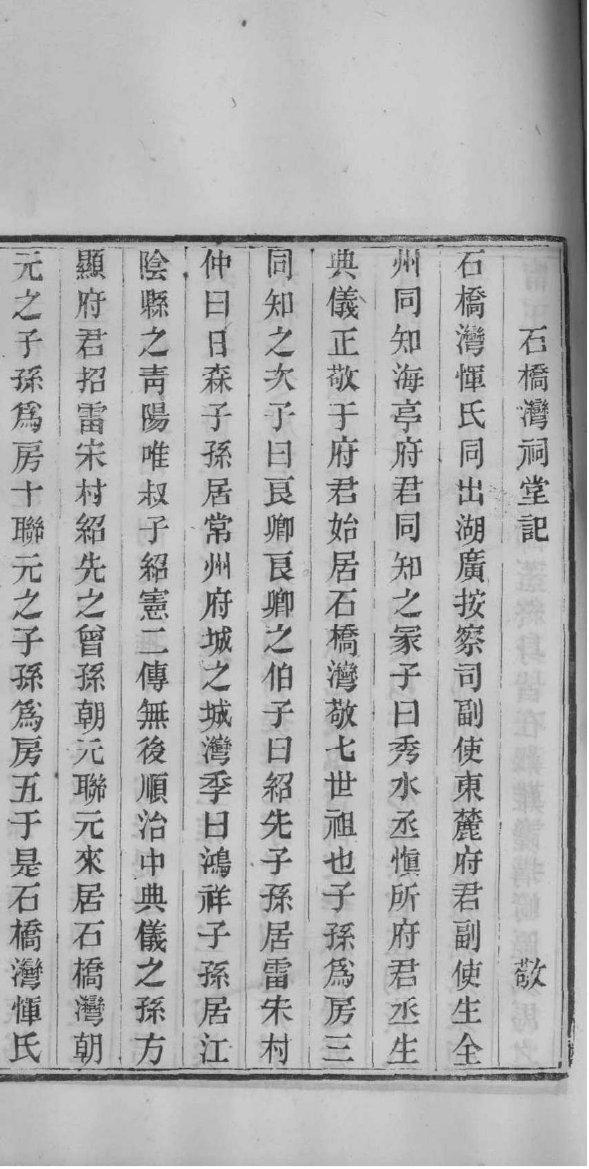 石橋灣祠堂記　敬
石橋灣惲氏同出湖廣按察司副使東麓府君副使生全
州同知海亭府君同知之冢子曰秀水丞愼所府君丞生
典儀正敬于府君始居石橋灣敬七世祖也子孫爲房三
同知之次子曰艮卿艮卿之伯子曰紹先子孫居雷宋村
仲曰日森子孫居常州府城之城灣季曰鴻祥子孫居江
陰縣之靑陽唯叔子紹憲二傳無後順治中典儀之孫方
顯府君招雷宋村紹先之曾孫朝元聯元來居石橋灣朝
元之子孫爲房十聯元之子孫爲房五于是石橋灣惲氏